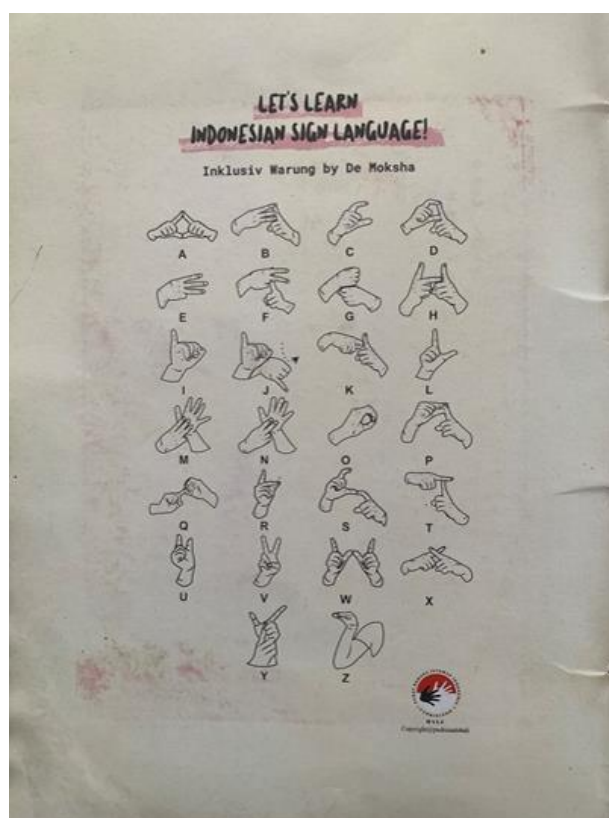 LET'S LEARN
INDONESIAN SIGN LANGUAGE!
Inklusiv Warung by De Moksha
A B C D
E F G H
I J K L
M N O P
Q R S T
U V W X
Y Z